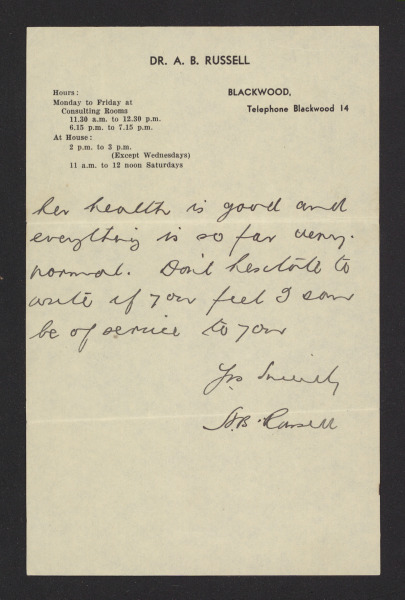 DR. A. B. RUSSELL
Hours:
Monday to Friday at
Consulting Rooms
11.30 a.m. to 12.30 p.m.
6.15 p.m. to 7.15 p.m.
At House:
2 p.m. to 3 p.m.
(Except Wednesdays)
11 a.m. to 12 noon Saturdays
BLACKWOOD,
Telephone Blackwood 14
her health is good and
everything is so far very
normal. Don't hesitate to
write if you feel I can
be of service to you
Yrs Sincerely
A.B. Russell